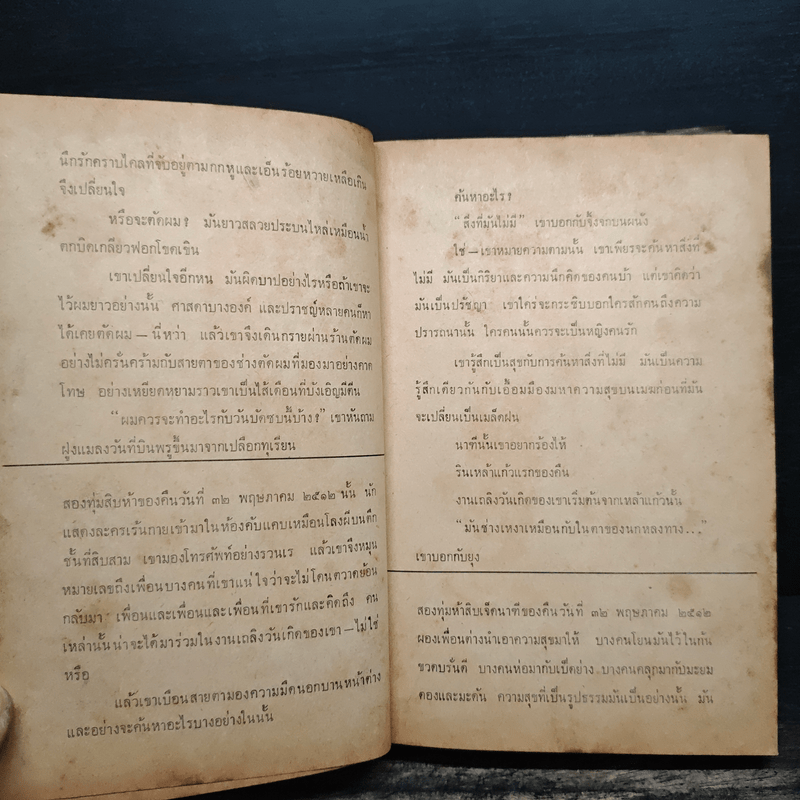 นึกรักคราบไคลที่จับอยู่ตามกกหูและเอ็นร้อยหวายเหลือเกิน
จึงเปลี่ยนใจ
หรือจะตัดผม? มันยาวสลวยประบนไหล่เหมือนน้ำ
ตกบิดเกลียวฟอกโขดเขิน
เขาเปลี่ยนใจอีกหน มันผิดบาปอย่างไรหรือถ้าเขาจะ
ไว้ผมยาวอย่างนั้น ศาสดาบางองค์ และปราชญ์หลายคนก็หา
ได้เคยตัดผม — นี่หว่า แล้วเขาจึงเดินกรายผ่านร้านตัดผม
อย่างไม่ครั่นคร้ามกับสายตาของช่างตัดผมที่มองมาอย่างคาด
โทษ อย่างเหยียดหยามราวเขาเป็นไส้เดือนที่บังเอิญมีตีน
“ผมควรจะทำอะไรกับวันบัดซบนี้บ้าง?” เขาหันถาม
ฝูงแมลงวันที่บินพรูขึ้นมาจากเปลือกทุเรียน
สองทุ่มสิบห้าของคืนวันที่ ๓๒ พฤษภาคม ๒๕๑๒ นั้น นัก
แสดงละครเร้นกายเข้ามาในห้องคับแคบเหมือนโลงผีบนตึก
ชั้นที่สิบสาม เขามองโทรศัพท์อย่างรวนเร แล้วเขาจึงหมุน
หมายเลขถึงเพื่อนบางคนที่เขาแน่ใจว่าจะไม่โดนตวาดย้อน
กลับมา เพื่อนและเพื่อนและเพื่อนที่เขารักและคิดถึง คน
เหล่านั้นน่าจะได้มาร่วมในงานเถลิงวันเกิดของเขา — ไม่ใช่
หรือ
แล้วเขาเบือนสายตามองความมืดนอกบานหน้าต่าง
และอย่างจะค้นหาอะไรบางอย่างในนั้น
ค้นหาอะไร?
“สิ่งที่มันไม่มี” เขาบอกกับจิ้งจกบนผนัง
ใช่ — เขาหมายความตามนั้น เขาเพียรจะค้นหาสิ่งที่
ไม่มี มันเป็นกิริยาและความนึกคิดของคนบ้า แต่เขาคิดว่า
มันเป็นปรัชญา เขาใคร่จะกระซิบบอกใครสักคนถึงความ
ปรารถนานั้น ใครคนนั้นควรจะเป็นหญิงคนรัก
เขารู้สึกเป็นสุขกับการค้นหาสิ่งที่ไม่มี มันเป็นความ
รู้สึกเดียวกันกับเอื้อมมือมหาความสุขบนเมฆก่อนที่มัน
จะเปลี่ยนเป็นเมล็ดฝน
นาฑีนั้นเขาอยากร้องไห้
รินเหล้าแก้วแรกของคืน
งานเถลิงวันเกิดของเขาเริ่มต้นจากเหล้าแก้วนั้น
“มันช่างเหงาเหมือนกับในตาของนกหลงทาง...”
เขาบอกกับยุง
สองทุ่มห้าสิบเจ็ดนาฑีของคืนวันที่ ๓๒ พฤษภาคม ๒๕๑๒
ผองเพื่อนต่างนำเอาความสุขมาให้ บางคนโยนมันไว้ในก้น
ขวดบรั่นดี บางคนห่อมากับเป็ดย่าง บางคนคลุกมากับมะยม
ดองและมะดัน ความสุขที่เป็นรูปธรรมมันเป็นอย่างนั้น มัน